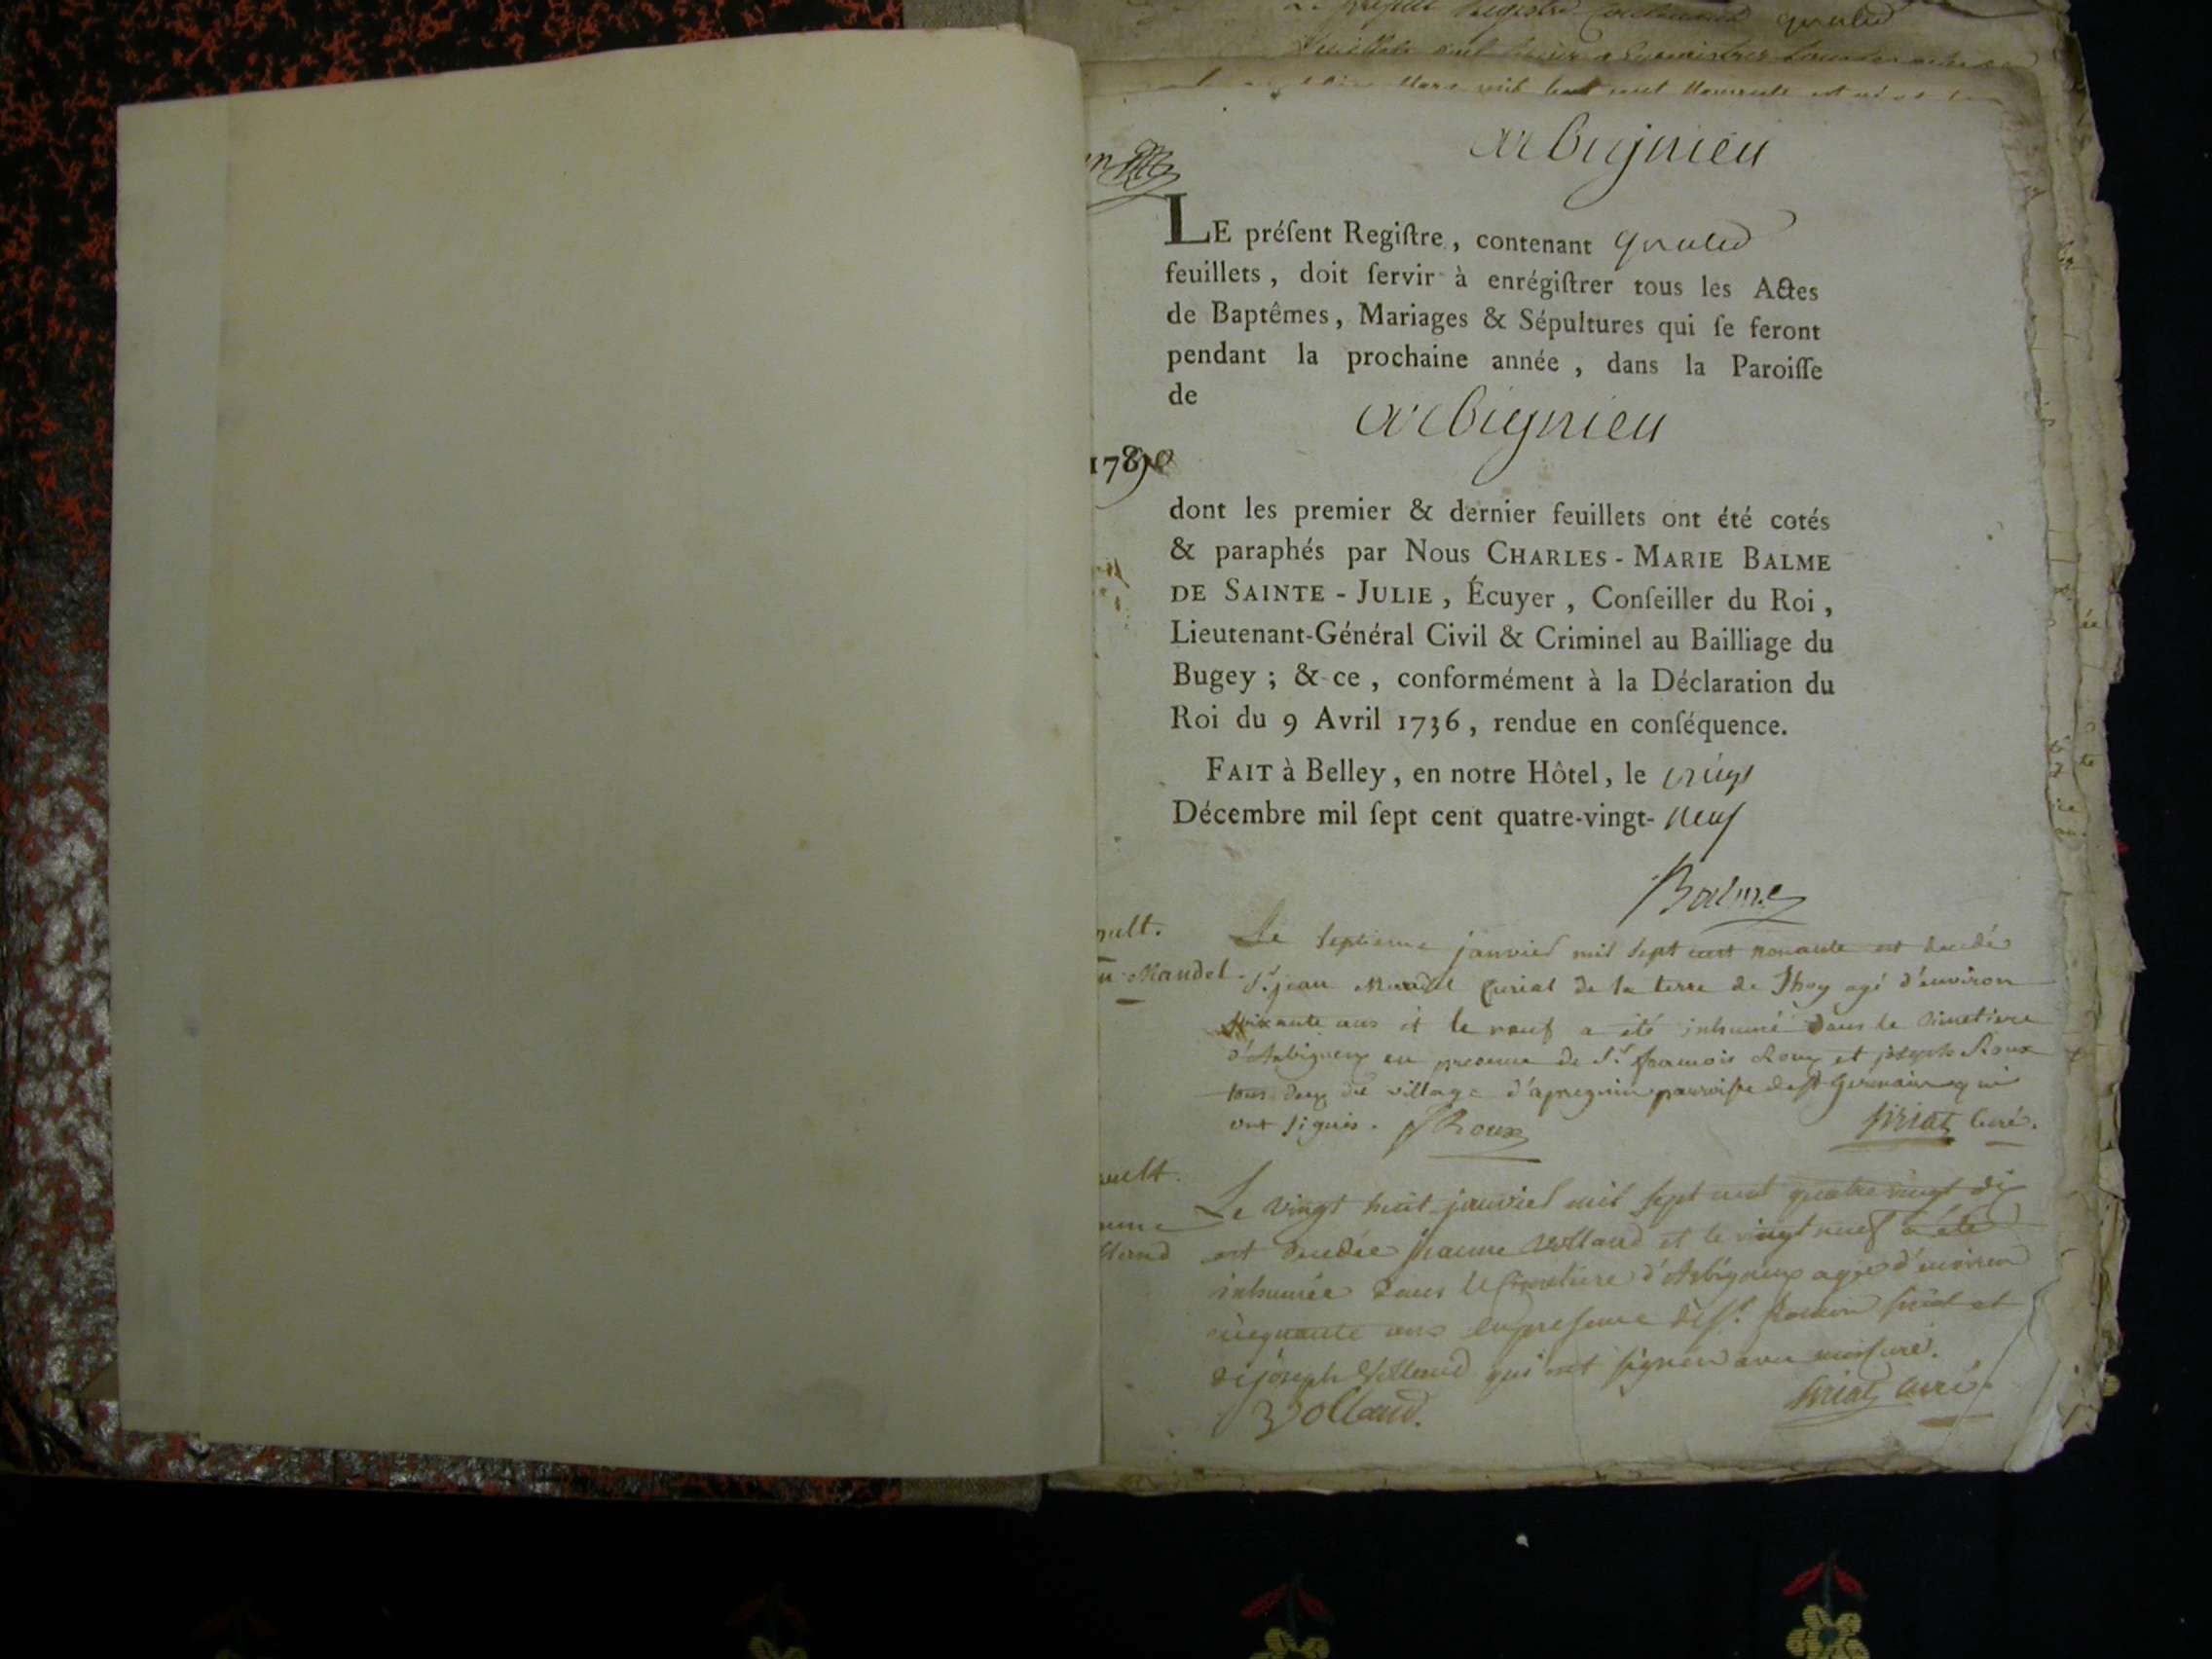 Le présent Registre contenant quatre
arbignieu
LE préſent Regiſtre, contenant quatre
feuillets, doit ſervir à enrégiſtrer tous les Actes
de Baptêmes, Mariages & Sépultures qui ſe feront
pendant la prochaine année, dans la Paroiſſe
de
arbignieu
1790
dont les premier & dernier feuillets ont été cotés
& paraphés par Nous CHARLES-MARIE BALME
DE SAINTE-JULIE, Écuyer, Conſeiller du Roi,
Lieutenant-Général Civil & Criminel au Bailliage du
Bugey; & ce, conformément à la Déclaration du
Roi du 9 Avril 1736, rendue en conſéquence.
FAIT à Belley, en notre Hôtel, le vingt
Décembre mil ſept cent quatre-vingt-neuf
Balme
pult.
Mandel
Le septieme janvier mil sept cent nonante est decedé
Sr. jean Mandel Curial de la terre de Thoy agé d'environ
soixante ans et le neuf a été inhumé dans le cimetiere
d'Arbigneux en presence de Sr. francois Roux et joseph Roux
tous deux du village d'apregnin parroisse de St Germain qui
ont signés. Roux
curé.
pult.
Le vingt huit janvier mil sept cent quatre vingt dix
est decedée jeanne Volland et le vingt neuf a été
inhumée dans le Cimetiere d'Arbigneux agée d'environ
cinquante ans en presence de Sr. et
de joseph Volland qui ont signés avec moi curé.
Volland.
curé